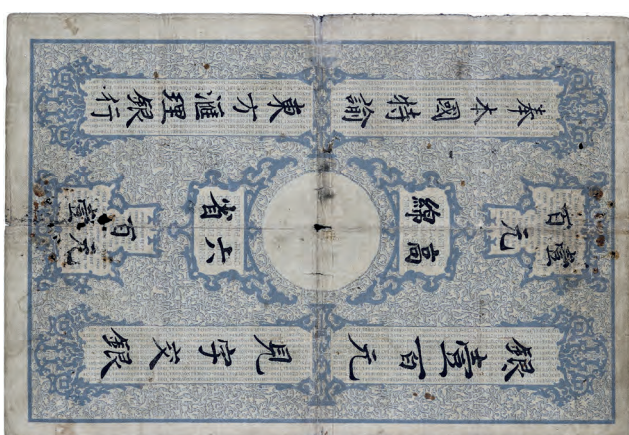 奉本國特諭
東方滙理銀行
壹百元
高綿
六省
壹百元
銀壹百元
見字交銀